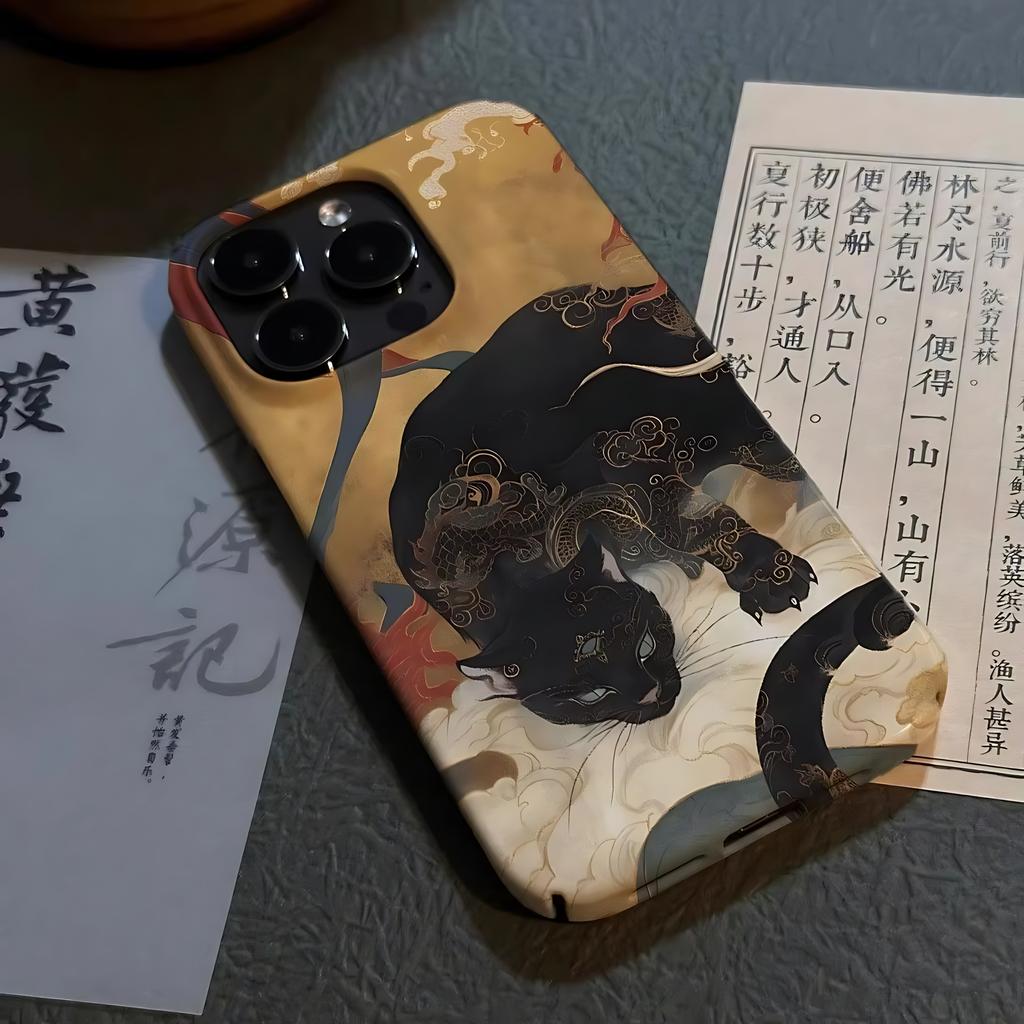 草鲜美，落英缤纷。渔人甚异
之，复前行，欲穷其林。
林尽水源，便得一山，山有
佛若有光。
便舍船，从口入。
初极狭，才通人。
复行数十步，豁
源記
黄髮
黄发垂髫，
并怡然自乐。